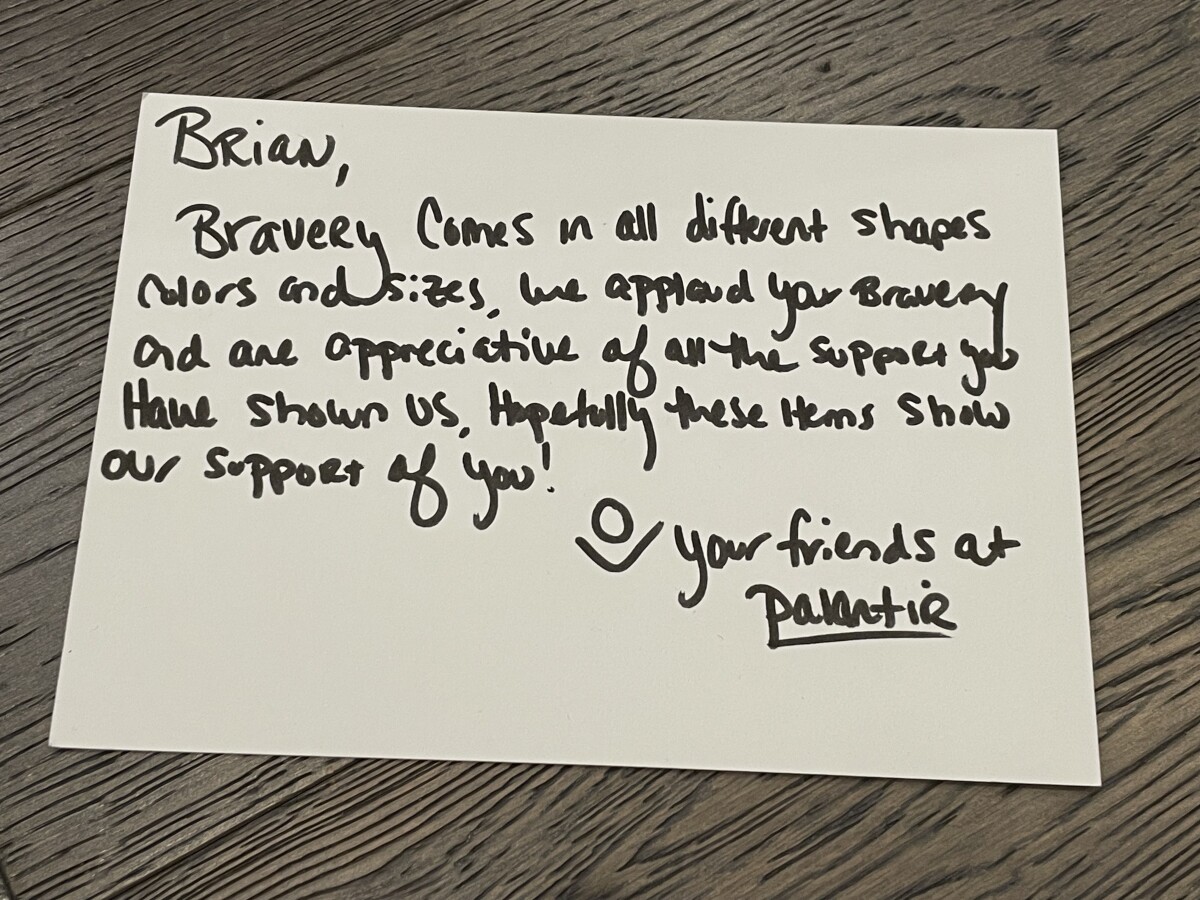 Brian,
Bravery Comes in all different shapes
colors and sizes, we applaud your Bravery
and are appreciative of all the support you
Have shown us, Hopefully these Items show
our support of you!
your friends at
Palantir